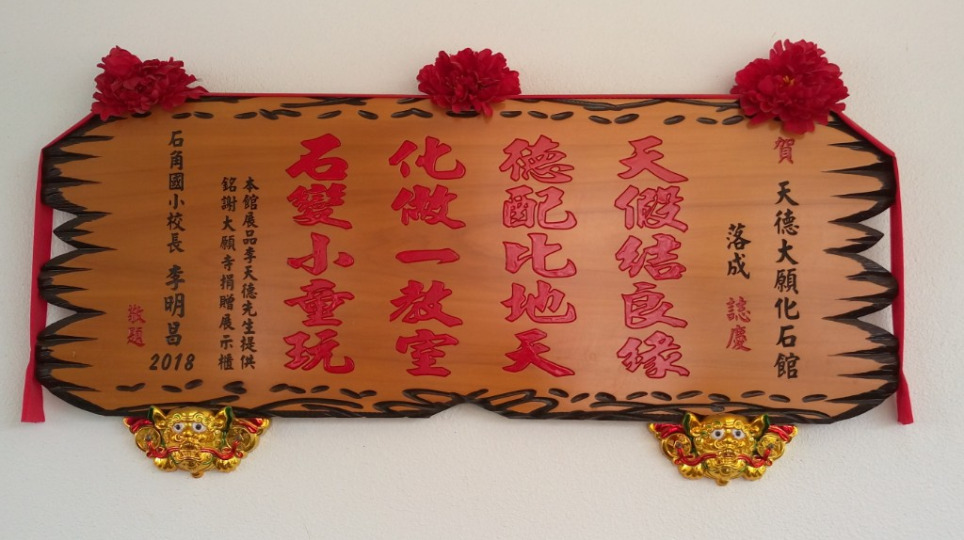 賀 天德大願化石館
落成 誌慶
天假結良緣
德配比地天
化做一教室
石變小童玩
本館展品李天德先生提供
銘謝大願寺捐贈展示櫃
石角國小校長 李明昌 2018
敬題